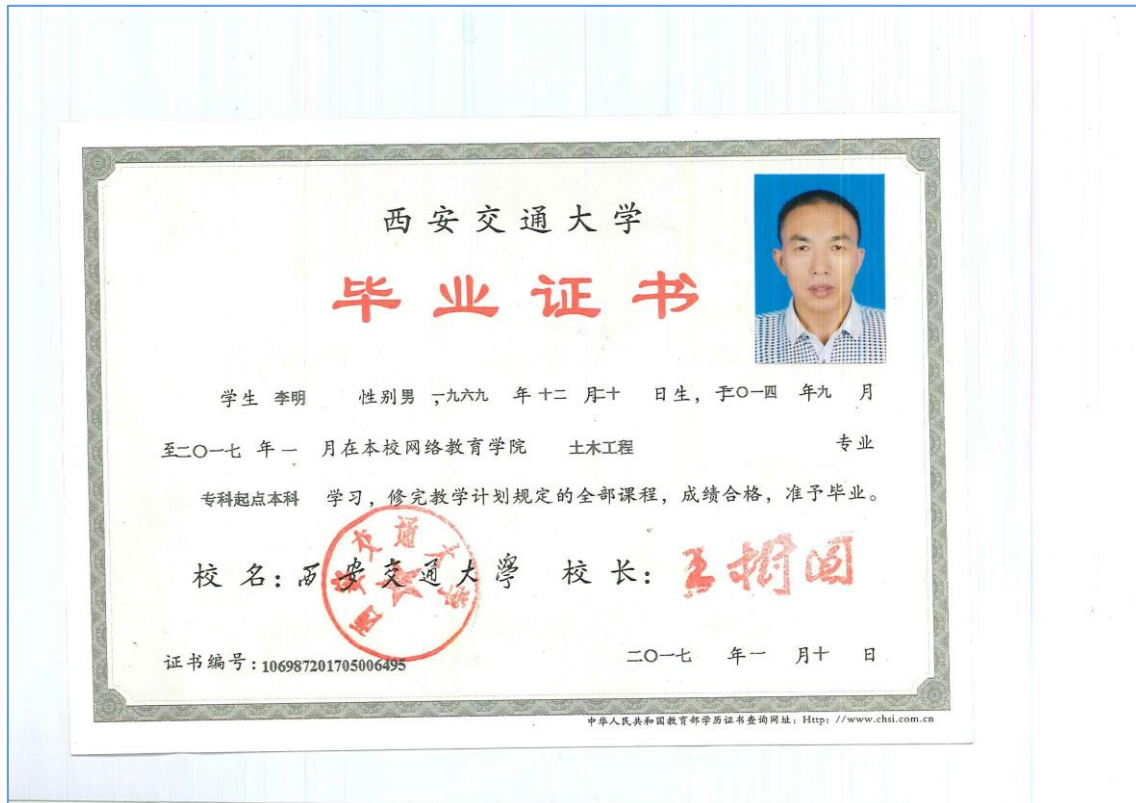 西安交通大学
毕业证书
学生 李明 性别男 ,一九六九 年 十二 月二十 日生, 于二〇一四 年九 月
至二〇一七 年 一 月在本校网络教育学院 土木工程 专业
专科起点本科 学习, 修完教学计划规定的全部课程, 成绩合格, 准予毕业。
校 名: 西安交通大學 校 长: 王树国
西安交通大学
证书编号: 106987201705006495 二〇一七 年一 月十 日
中华人民共和国教育部学历证书查询网址: Http: //www.chsi.com.cn